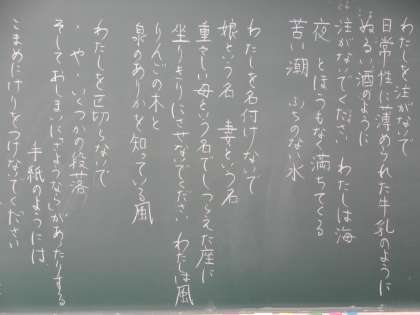 わたしを注がないで
日常性に薄められた牛乳のように
ぬるい酒のように
注がないでください わたしは海
夜 とほうもなく満ちてくる
苦い潮 ふちのない水
わたしを名付けないで
娘という名 妻という名
重々しい母という名でしつらえた座に
坐りきりにさせないでください わたしは風
りんごの木と
泉のありかを知っている風
わたしを区切らないで
・や・いくつかの段落
そしておしまいに「さようなら」があったりする
手紙のようには
こまめにけりをつけないでください